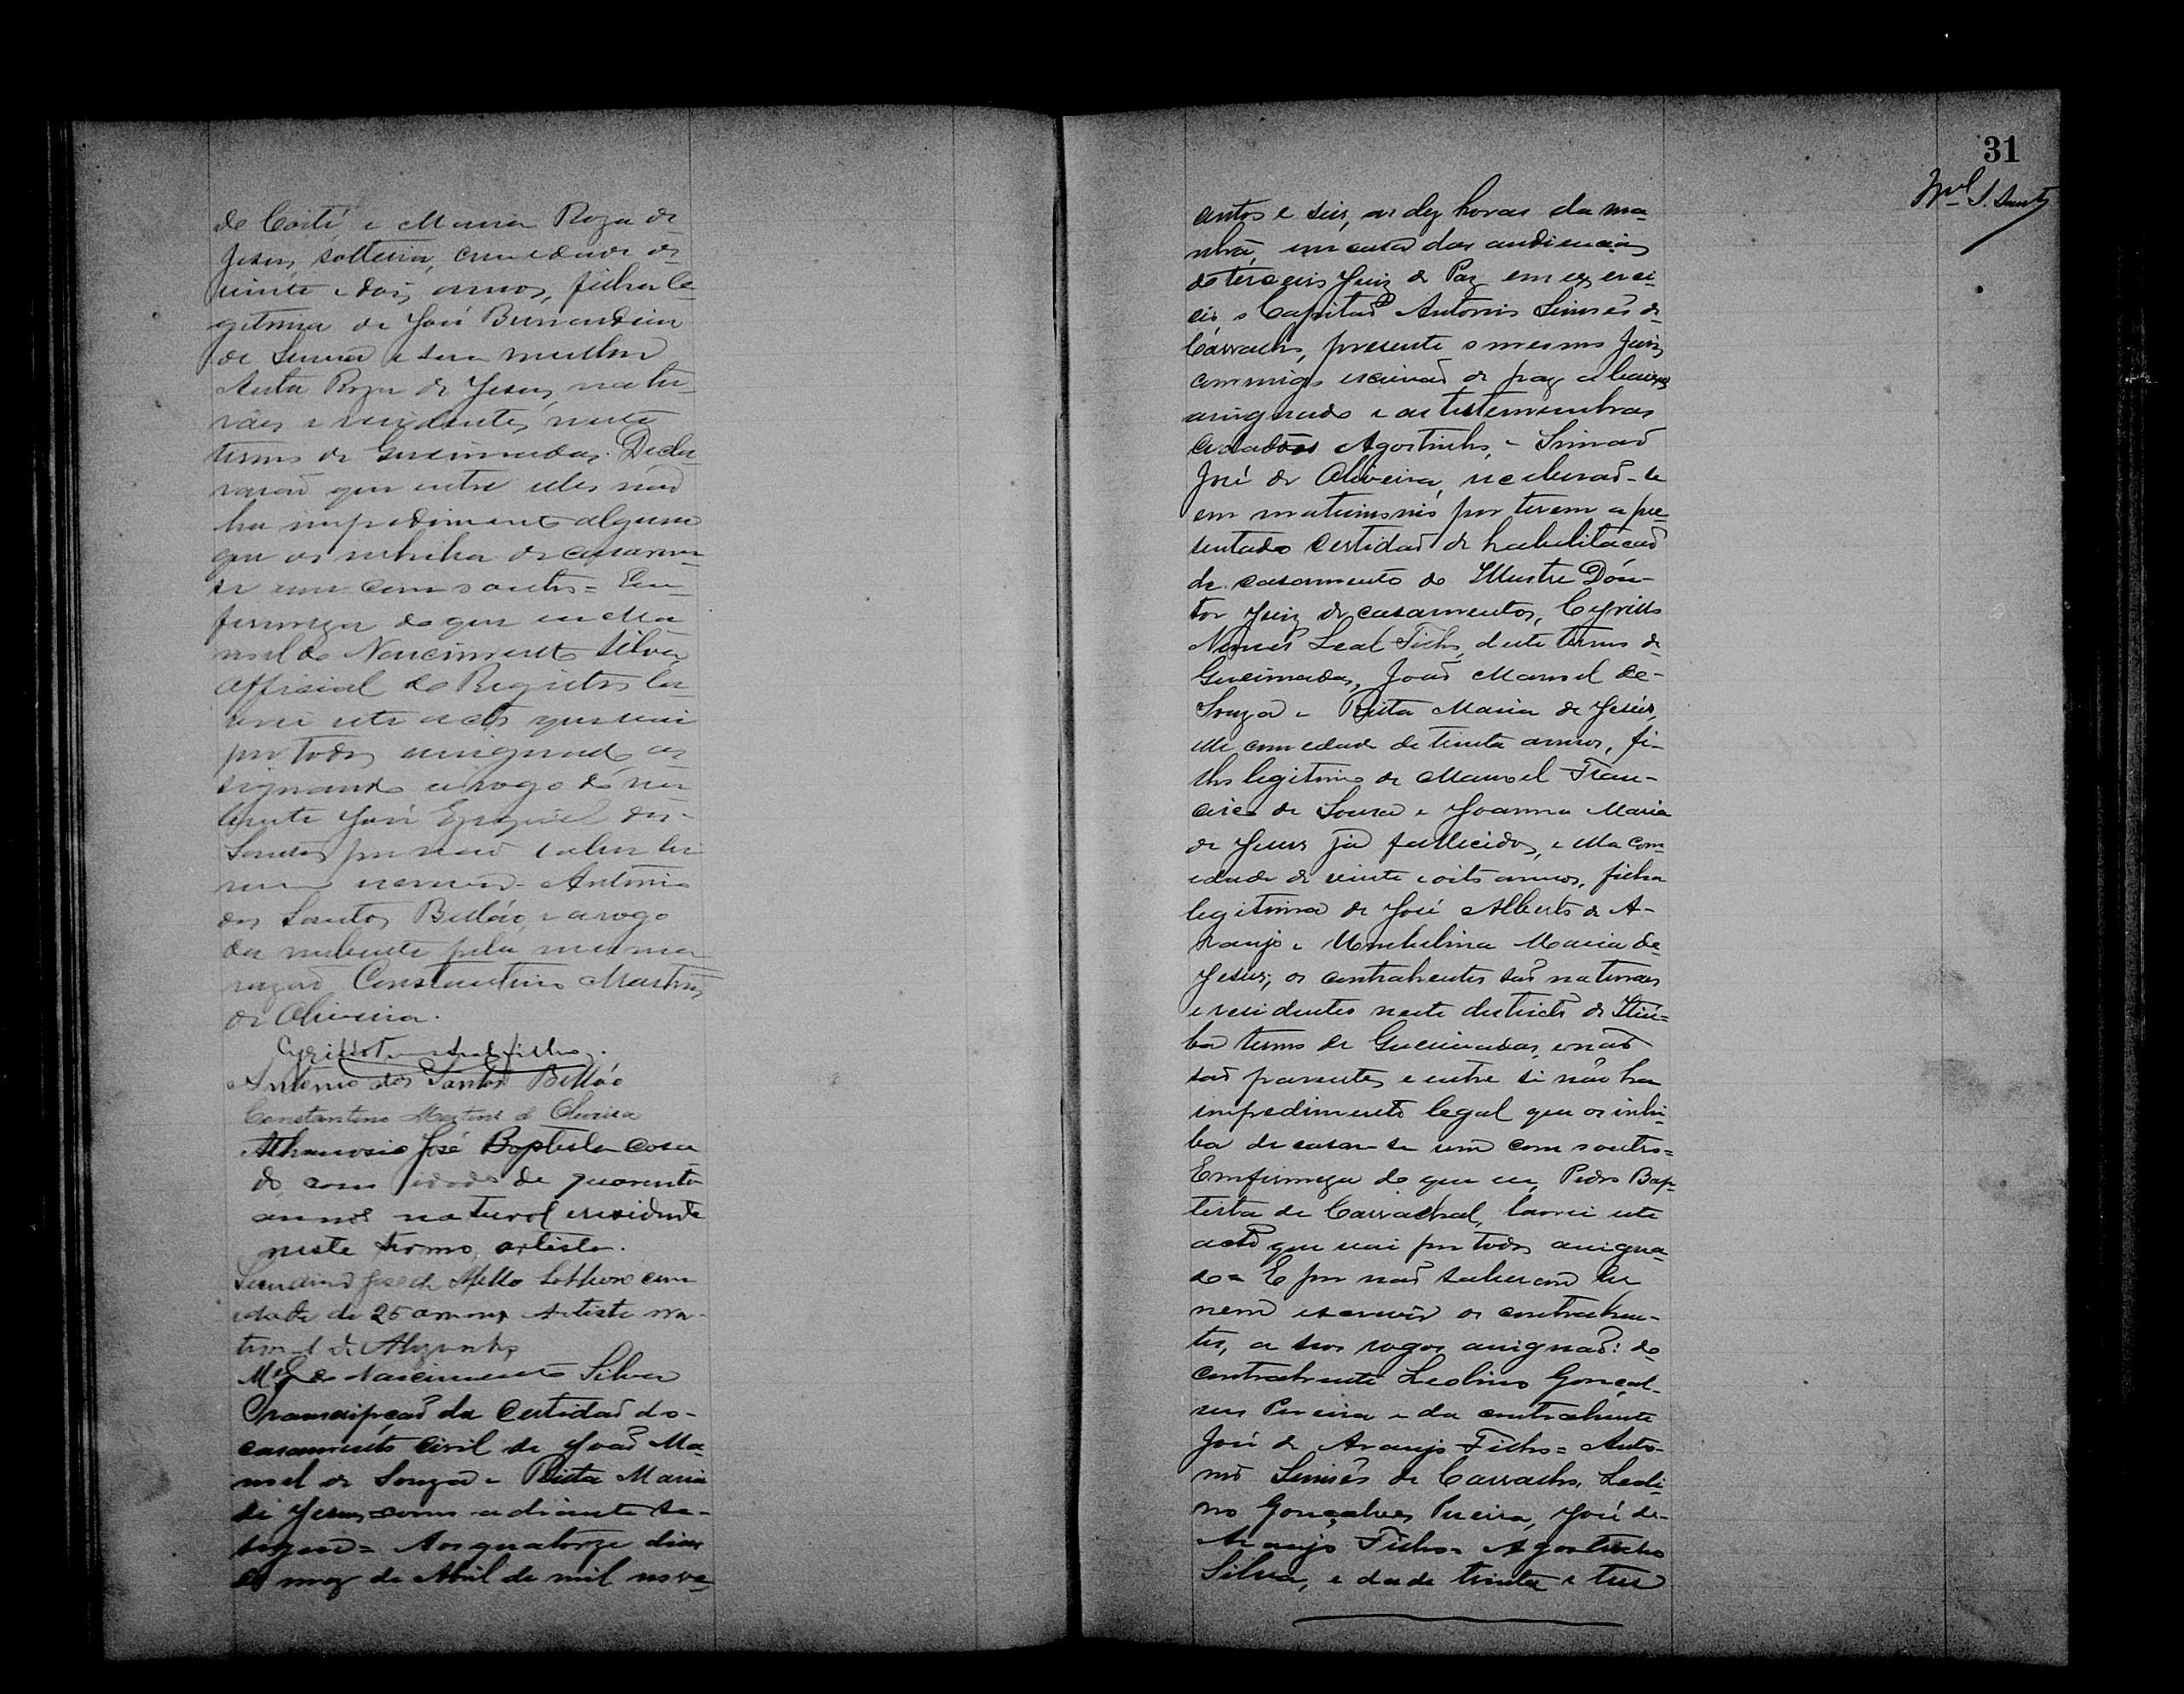 de Coité e Maria Roza de
Jesus, solteira, com edade de
vinte e dois annos, filha le-
gitima de José Bernardino
de Senna e sua mulher
Anta Roza de Jesus, natu-
raes e residentes neste
termo de Queimadas. Decla-
rarão que entre elles não
ha impedimento algum
que os inhiba de casarem-
se um com o outro = Em
firmeza do que eu Ma
noel do Nascimento Silva,
Official do Registro la-
vrei este acto que vai
por todos assignado, as-
signando a rogo do nu-
bente José Ezequiel dos
Santos por não saber ler
nem escrever Antonio
dos Santos Bellão, e a rogo
da nubente pela mesma
razão Constantino Martins
de Oliveira.
Cyrillo Leal filho.
Antonio dos Santos Bellão
Constantino Martins de Oliveira
Athanosio José Baptista casa
do com idade de quarenta
annos natural e residente
neste termo, artista.
José de Mello Solteiro com
idade de 25 annos Artista na-
tural de
Mel do Nascimento Silva
Transcripção da Certidão do
casamento Civil de João Ma-
noel de Souza e Rita Maria
de Jesus, como adiante se-
segue = Aos quatorze dias
do mez de Abril de mil nove-
31
Mel S. Santos
centos e seis, as dez horas da ma-
nhã, em casa das audiencias
do terceiro Juiz de Paz em exerci-
cio o Capitão Antonio Simões de
Carvalho, presente o mesmo Juiz,
commigo escrivão de paz abaixo
assignado e as testemunhas
Agostinho, e Simão
José de Oliveira, receberão-se
em matrimonio por terem apre-
sentado certidão de habilitação
de casamento do Illustre Dou-
tor Juiz de casamentos, Cyrillo
Nunes Leal Filho, deste termo de
Queimadas, João Manoel de
Souza e Rita Maria de Jesus,
elle com edade de trinta annos, fi-
lho legitimo de Manoel Fran-
cisco de Souza e Joanna Maria
de Jesus já fallecidos, e ella com
edade de vinte e oito annos, filha
legitima de José Alberto de A-
raujo e Umbelina Maria de
Jesus; os contrahentes são naturaes
e residentes neste districto de Itiú-
ba termo de Queimadas, e não
são parentes, e entre si não ha
impedimento legal que os inhi-
ba de casar-se um com o outro =
Em firmeza do que eu, Pedro Bap-
tista de Carvalhal, lavrei este
acto que vai por todos assigna-
do = E por não saberem ler
nem escrever os contrahen-
tes, a seus rogos assignão: do
contrahente Leolino Gonçal-
ves Pereira e da contrahente
José de Araujo Filho = Anto-
nio Simões de Carvalho, Leoli-
no Gonçalves Pereira, José de
Araujo Filho = Agostinho
Silva, edade trinta e tres